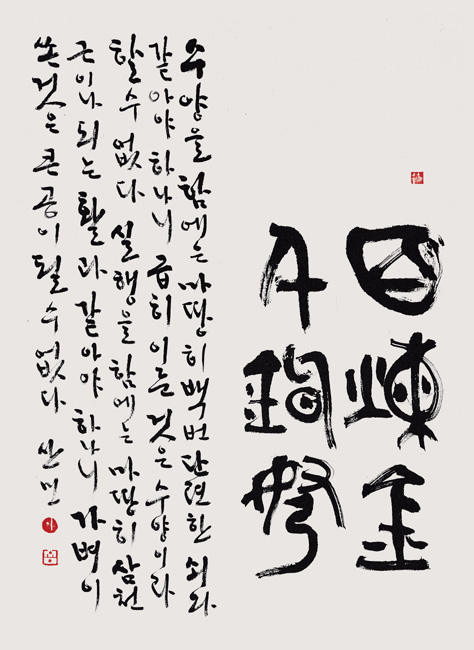 百煉金
千鈞弩
수양을 함에는 마땅히 백번 단련한 쇠와
같아야 하나니 급히 이룬 것은 수양이라
할 수 없다 실행을 함에는 마땅히 삼천
근이나 되는 활과 같아야 하나니 가벼이
쏜 것은 큰 공이 될 수 없다 산민